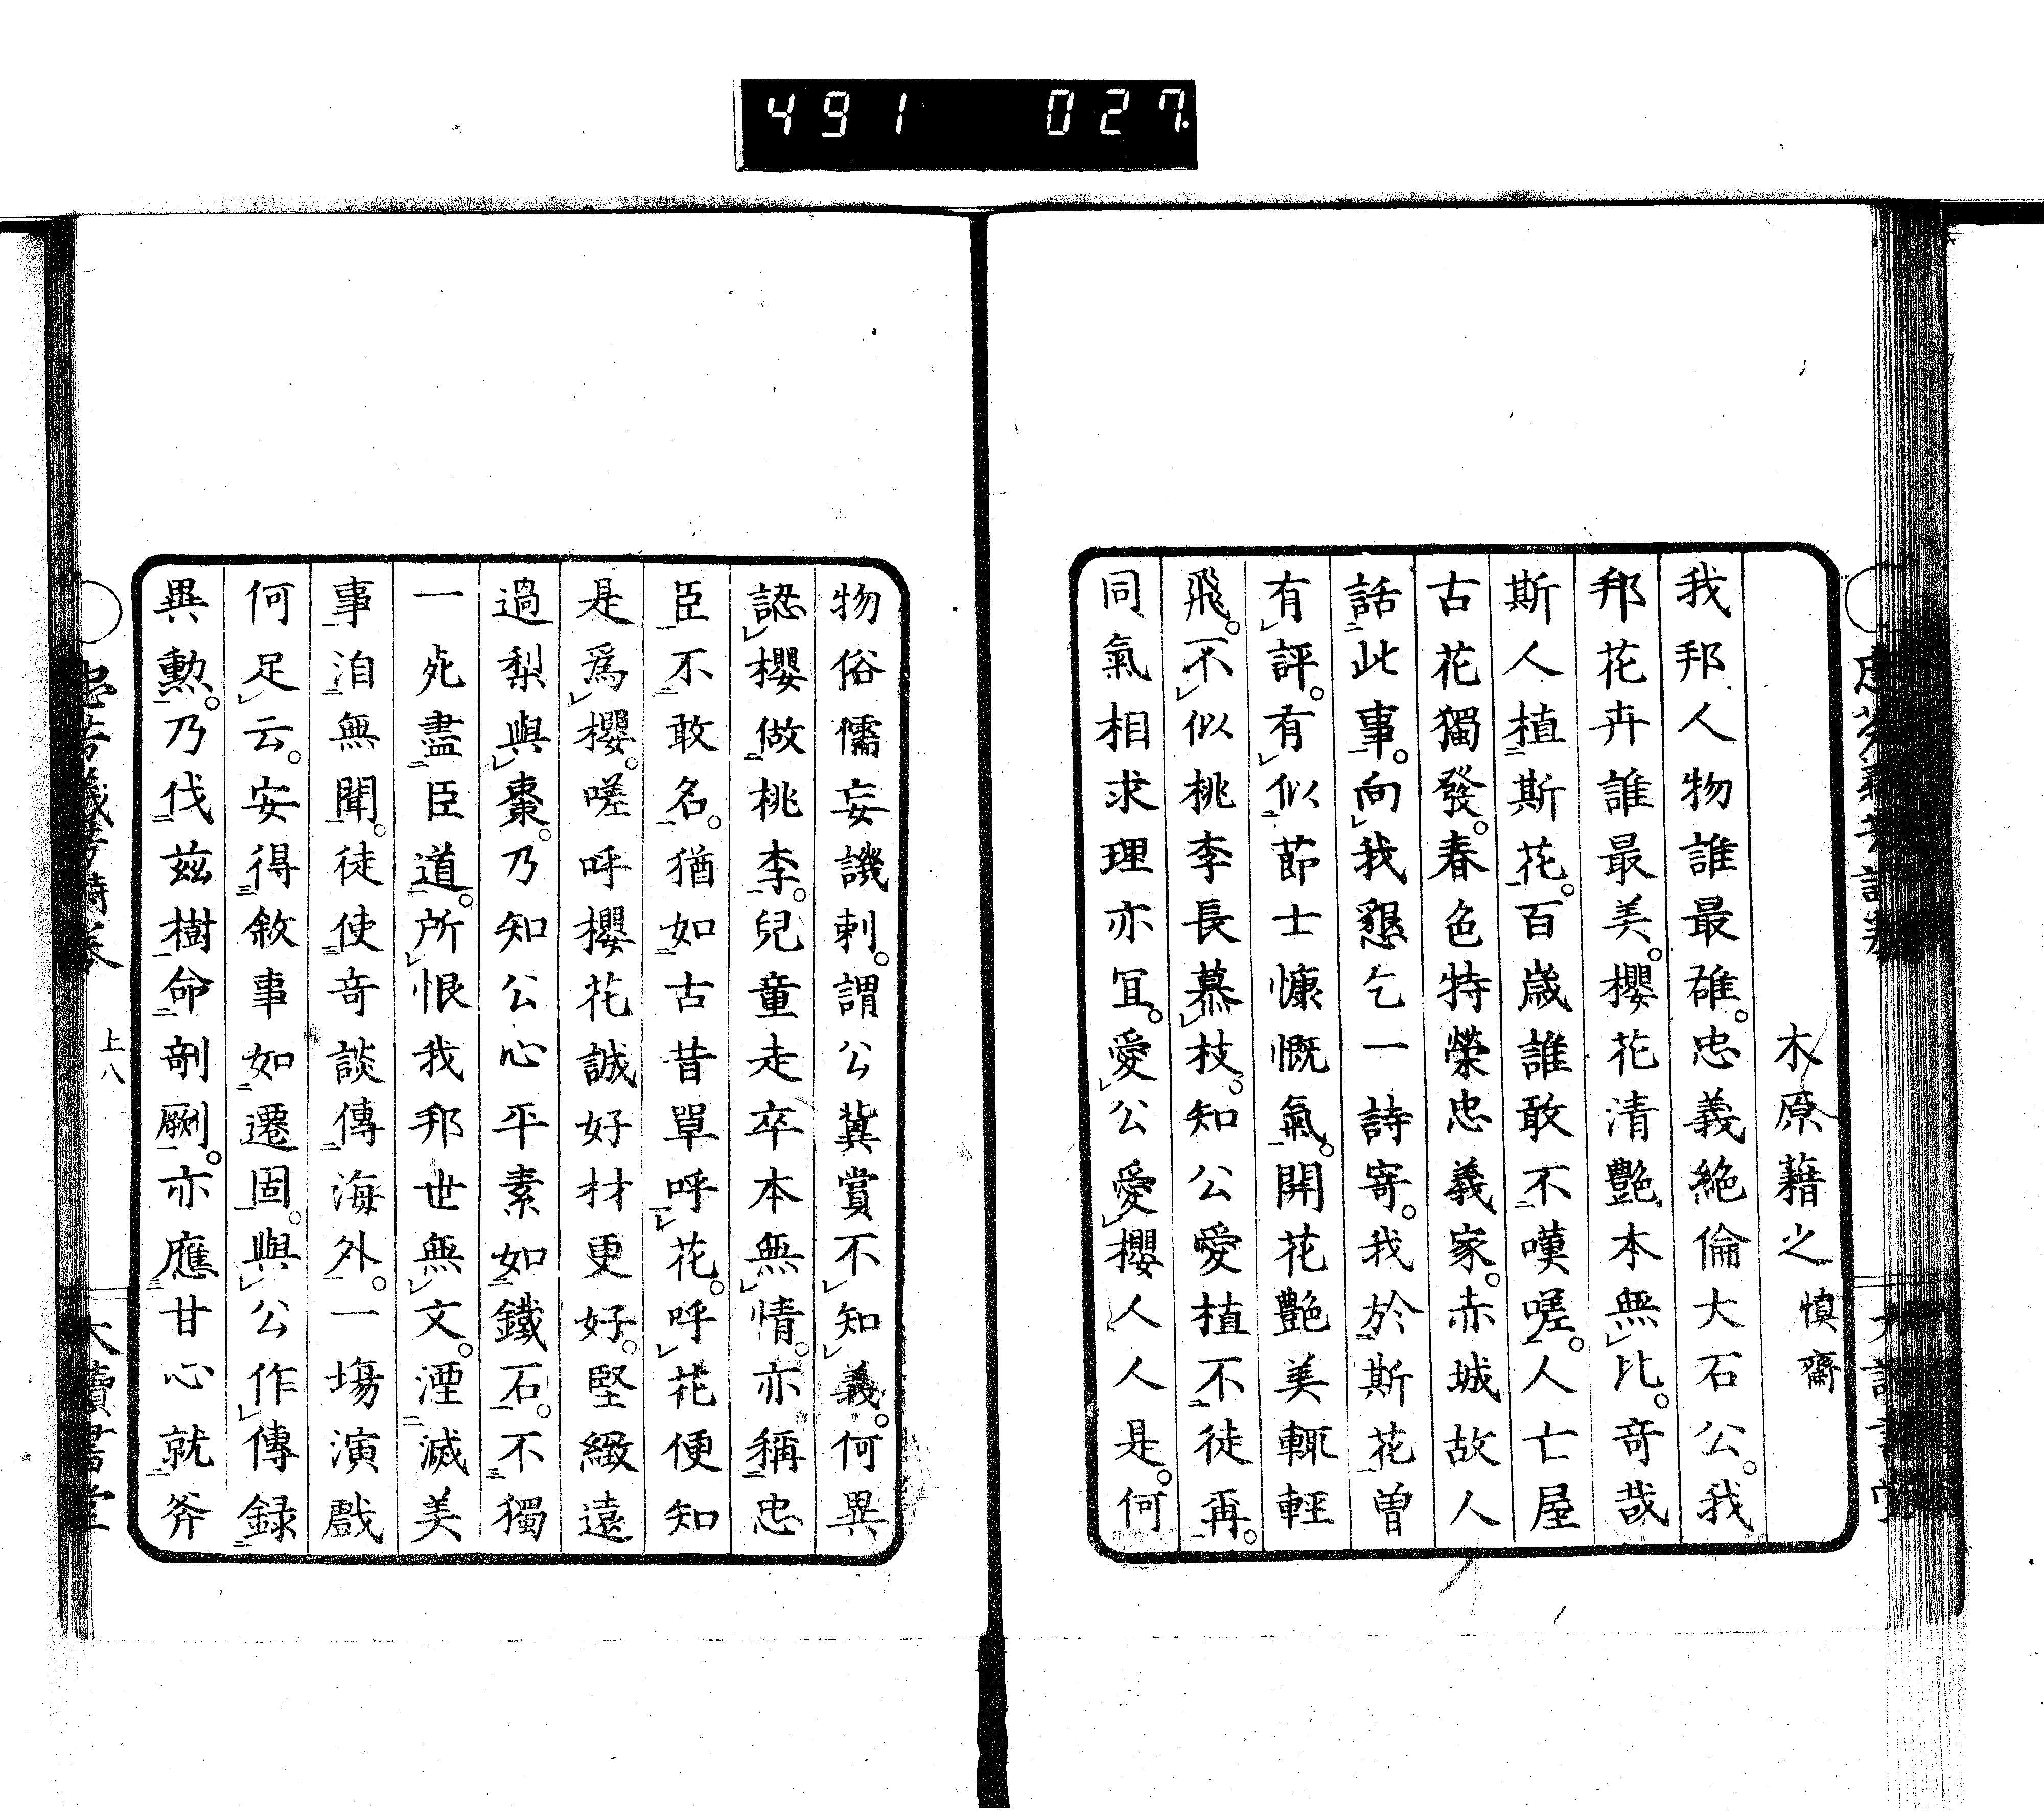 491 027
木原藉之 慎齋
我邦人物誰最碓。忠義絶倫大石公。我
邦花卉誰最美。櫻花清艷本無比。奇哉
斯人植斯花。百歳誰敢不嘆嗟。人亡屋
古花獨發。春色特榮忠義家。赤城故人
話此事。向我懇乞一詩寄。我於斯花曽
有評。有似節士慷慨氣。開花艶美輒輕
飛。不似桃李長慕枝。知公愛植不徒再。
同氣相求理亦冝。愛公愛櫻人人是。何
物俗儒妄譏刺。謂公冀賞不知義。何異
認櫻做桃李。兒童走卒本無情。亦稱忠
臣不敢名。猶如古昔單呼花。呼花便知
是爲櫻。嗟呼櫻花誠好材更好。堅緻遠
過梨與棗。乃知公心平素如鐵石。不獨
一死盡臣道。所恨我邦世無文。湮滅美
事洎無聞。徒使奇談傳海外。一場演戲
何足云。安得敘事如遷固。與公作傳録
異勲。乃伐茲樹命剞劂。亦應甘心就斧
上八